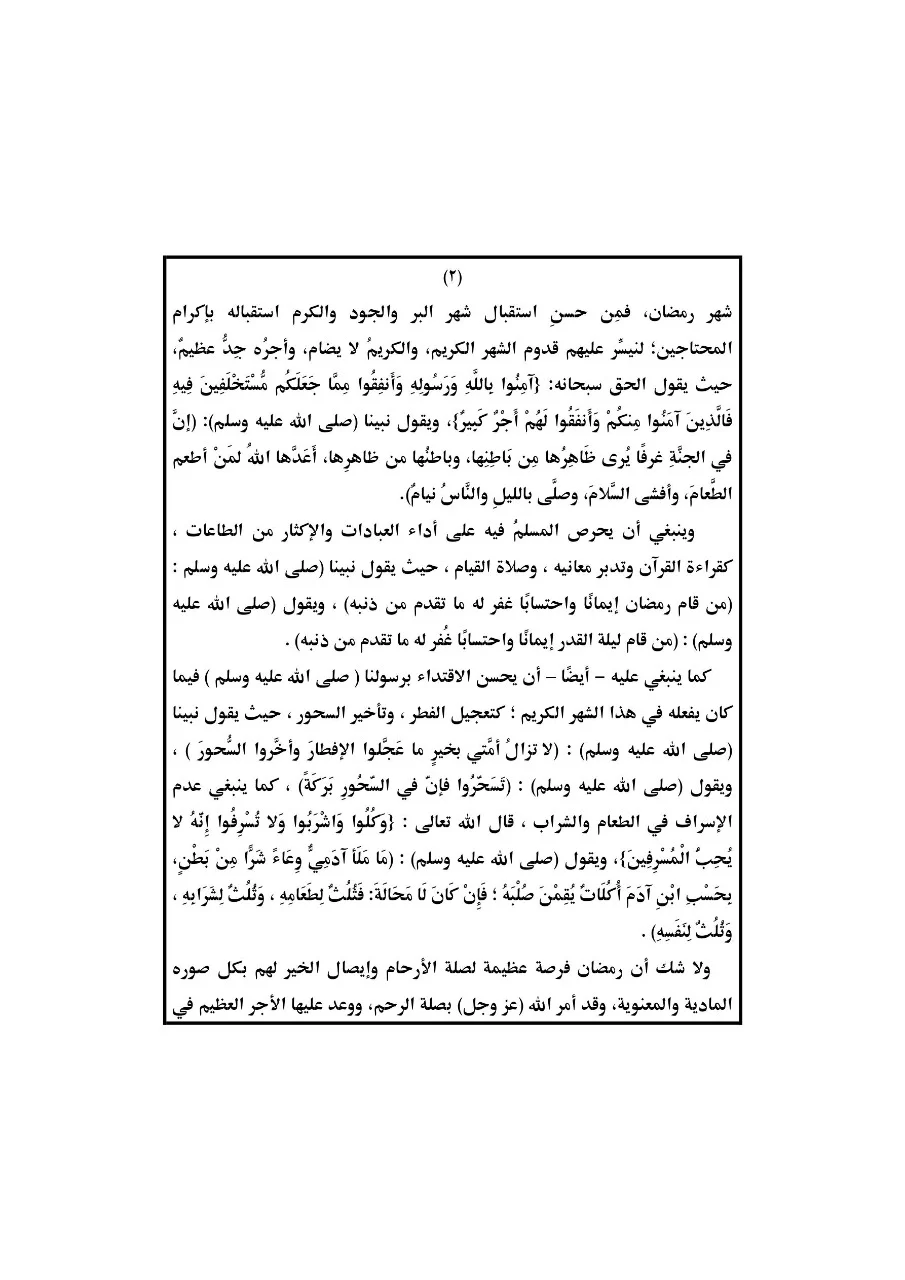 (٢)
شهر رمضان، فمِن حسنِ استقبال شهر البر والجود والكرم استقباله بإكرام
المحتاجين؛ لنيسِّر عليهم قدوم الشهر الكريم، والكريمُ لا يضام، وأجرُه جِدُّ عظيمٌ،
حيث يقول الحق سبحانه: {آمِنُوا بِاللَّهِ وَرَسُولِهِ وَأَنفِقُوا مِمَّا جَعَلَكُم مُّسْتَخْلَفِينَ فِيهِ
فَالَّذِينَ آمَنُوا مِنكُمْ وَأَنفَقُوا لَهُمْ أَجْرٌ كَبِيرٌ}، ويقول نبينا (صلى الله عليه وسلم): (إنَّ
في الجنَّةِ غرفًا يُرى ظَاهِرُها مِن بَاطِنِها، وباطنُها من ظاهرِها، أَعَدَّها اللهُ لمَنْ أطعم
الطَّعامَ، وأفشى السَّلامَ، وصلَّى بالليلِ والنَّاسُ نيامٌ).
وينبغي أن يحرص المسلمُ فيه على أداء العبادات والإكثار من الطاعات ،
كقراءة القرآن وتدبر معانيه ، وصلاة القيام ، حيث يقول نبينا (صلى الله عليه وسلم :
(من قام رمضان إيمانًا واحتسابًا غفر له ما تقدم من ذنبه) ، ويقول (صلى الله عليه
وسلم) : (من قام ليلة القدر إيمانًا واحتسابًا غُفر له ما تقدم من ذنبه) .
كما ينبغي عليه – أيضًا – أن يحسن الاقتداء برسولنا ( صلى الله عليه وسلم ) فيما
كان يفعله في هذا الشهر الكريم ؛ كتعجيل الفطر ، وتأخير السحور ، حيث يقول نبينا
(صلى الله عليه وسلم) : (لا تزالُ أمَّتي بخيرٍ ما عَجَّلوا الإفطارَ وأخَّروا السُّحورَ ) ،
ويقول (صلى الله عليه وسلم) : (تَسَحّرُوا فإنّ في السّحُورِ بَرَكَةً) ، كما ينبغي عدم
الإسراف في الطعام والشراب ، قال الله تعالى : {وَكُلُوا وَاشْرَبُوا وَلا تُسْرِفُوا إِنَّهُ لا
يُحِبُ الْمُسْرِفِينَ}، ويقول (صلى الله عليه وسلم) : (مَا مَلَأ آدَمِيٌّ وِعَاءً شَرًّا مِنْ بَطْنٍ،
بِحَسْبِ ابْنِ آدَمَ أُكُلَاتٌ يُقِمْنَ صُلْبَهُ ؛ فَإِنْ كَانَ لَا مَحَالَةَ: فَثُلُثٌ لِطَعَامِهِ ، وَثُلُثٌ لِشَرَابِهِ ،
وَثُلُثٌ لِنَفَسِهِ) .
ولا شك أن رمضان فرصة عظيمة لصلة الأرحام وإيصال الخير لهم بكل صوره
المادية والمعنوية، وقد أمر الله (عز وجل) بصلة الرحم، ووعد عليها الأجر العظيم في